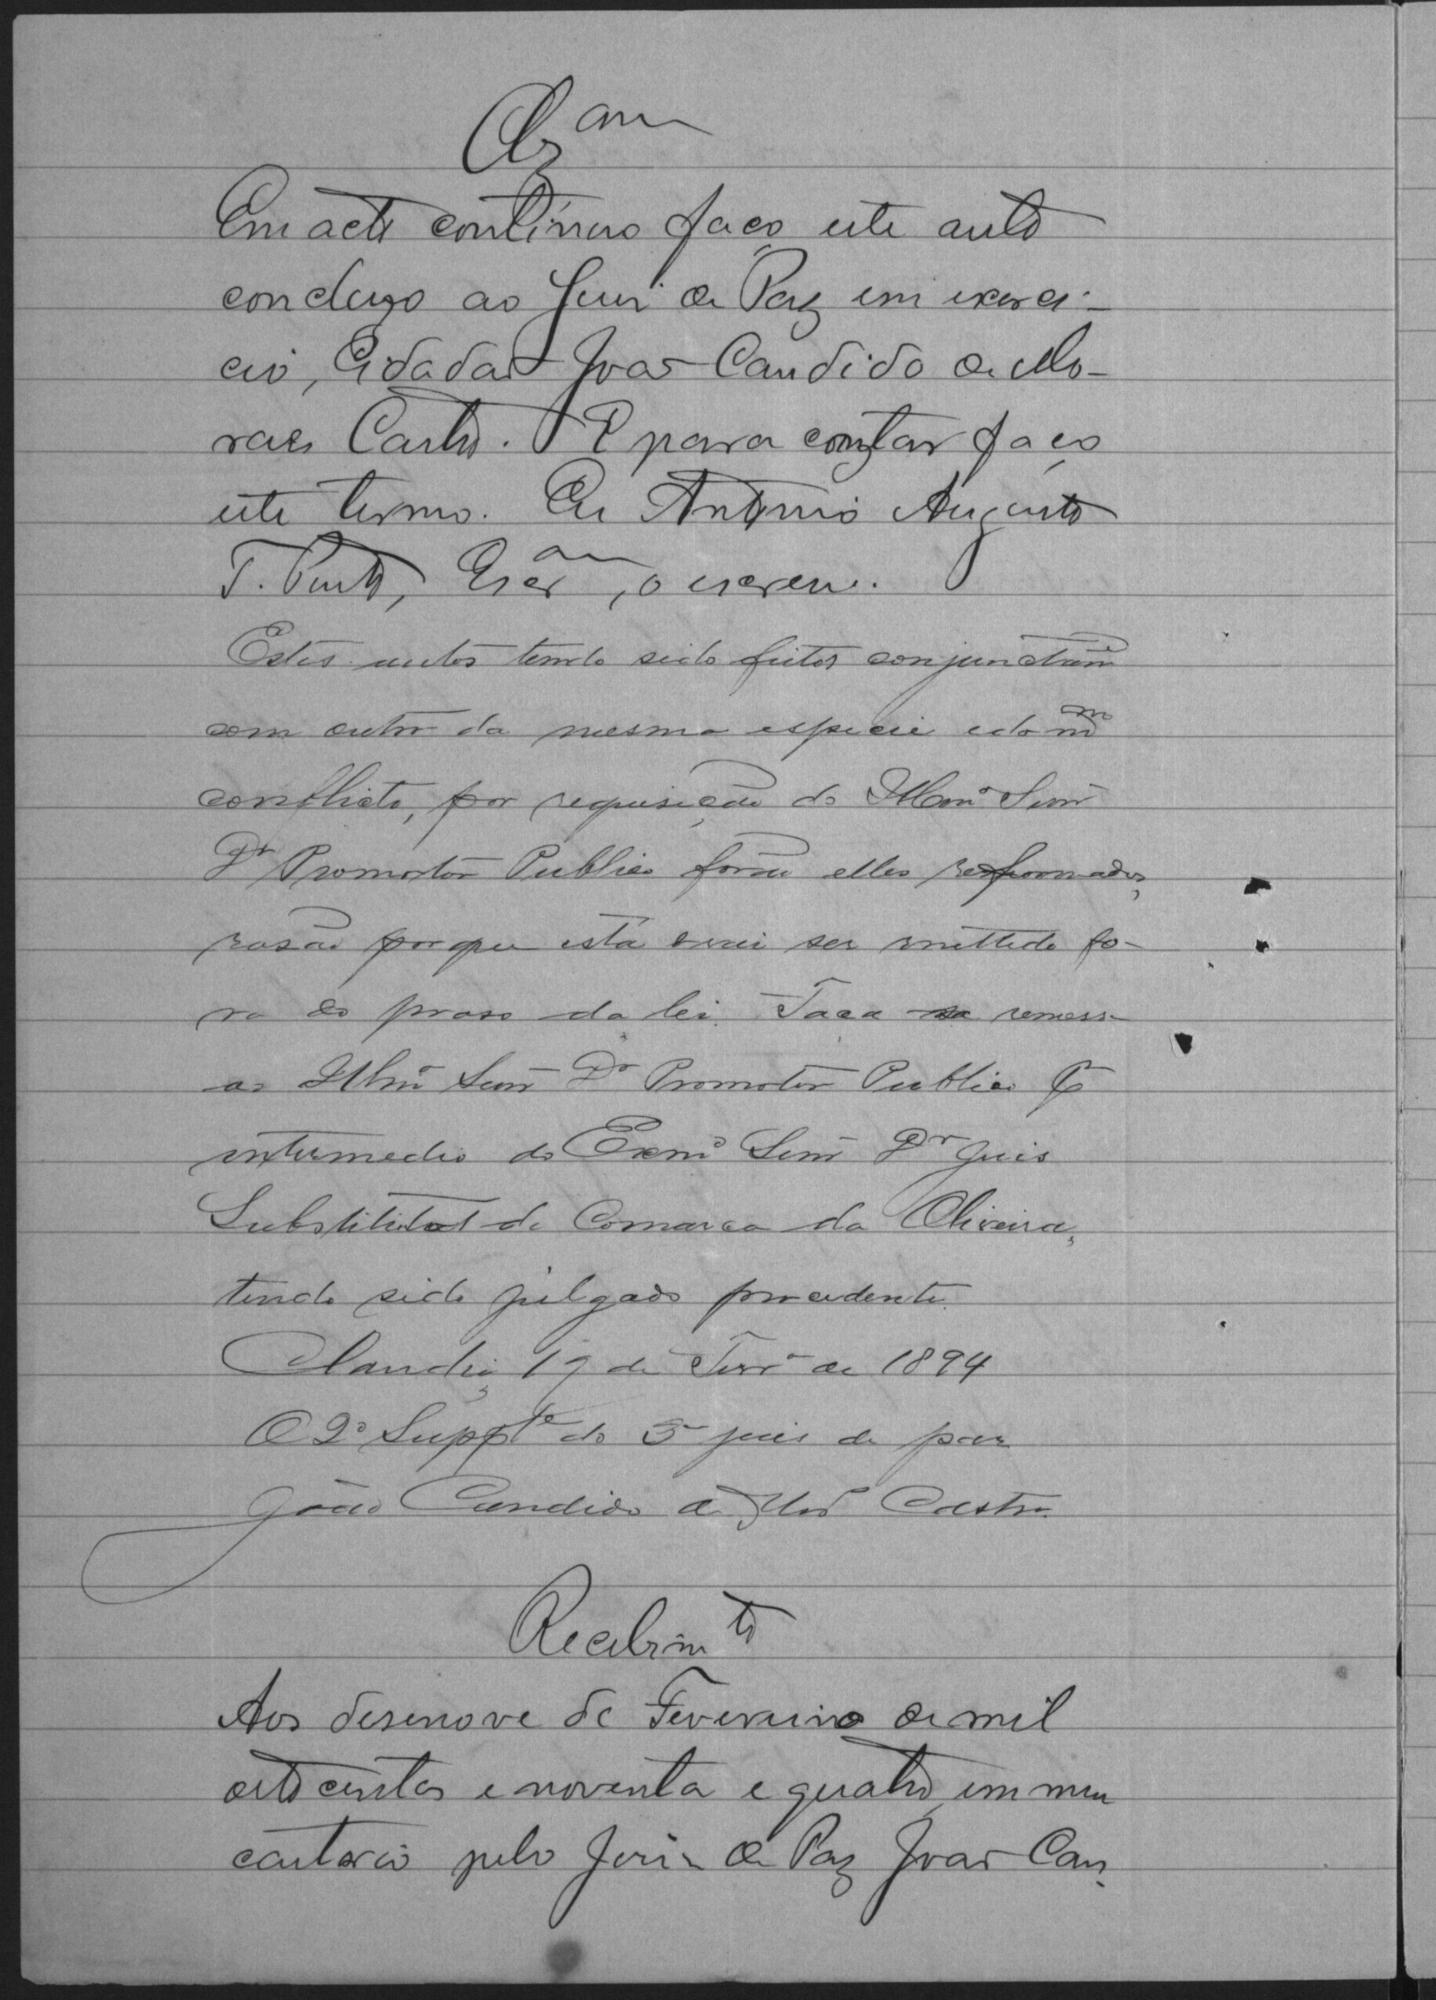 Cls.am
Em acto continuo faço este auto
concluzo ao Juiz de Paz em exerci-
cio, Cidadão João Candido de Mo-
raes Castro. E para constar faço
este termo. Eu Antonio Augusto
T. Pinto, Escr.am, o escrevi.
Estes autos tendo sido feitos conjunctam.e
com outro da mesma especie e do m.mo
conflicto, por requisição do Illmº Senr
Dr Promotor Publico forão elles reformados,
rasão porque está ser mettido fo-
ra do praso da lei. Faça remessa
ao Illmº Senr Dr Promotor Publico p
intermedio do Exmº Senr Dr Juis
Substituto de Comarca da Oliveira,
tendo sido julgado procedente.
Claudio, 19 de Fevrº de 1894
O 2º Suppte do 3º juis de paz
João Candido de Mor.s Castro
Recebim.to
Aos desenove de Fevereiro de mil
oitocentos e noventa e quatro, em meu
cartorio pelo Juiz de Paz João Can-